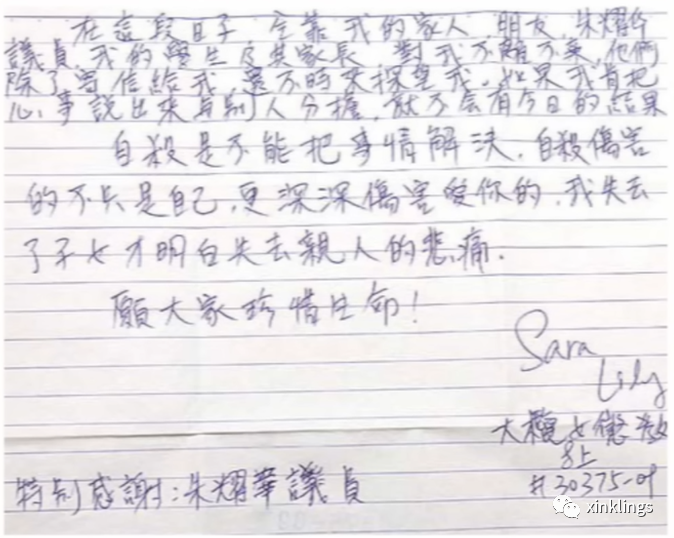 在這段日子,全靠我的家人,朋友,朱耀华
議員,我的學生及其家長,對我不離不棄,他們
除了寄信給我,還不時來探望我,如果我肯把
心事說出來與別人分擔,就不会有今日的結果
自殺是不能把事情解決,自殺傷害
的不只是自己,更深深傷害愛你的,我失去
了子女才明白失去親人的悲痛.
願大家珍惜生命!
Sara
Lily
大欖女懲教
上
#30375-01
特别感謝:朱耀華議員
xinklings